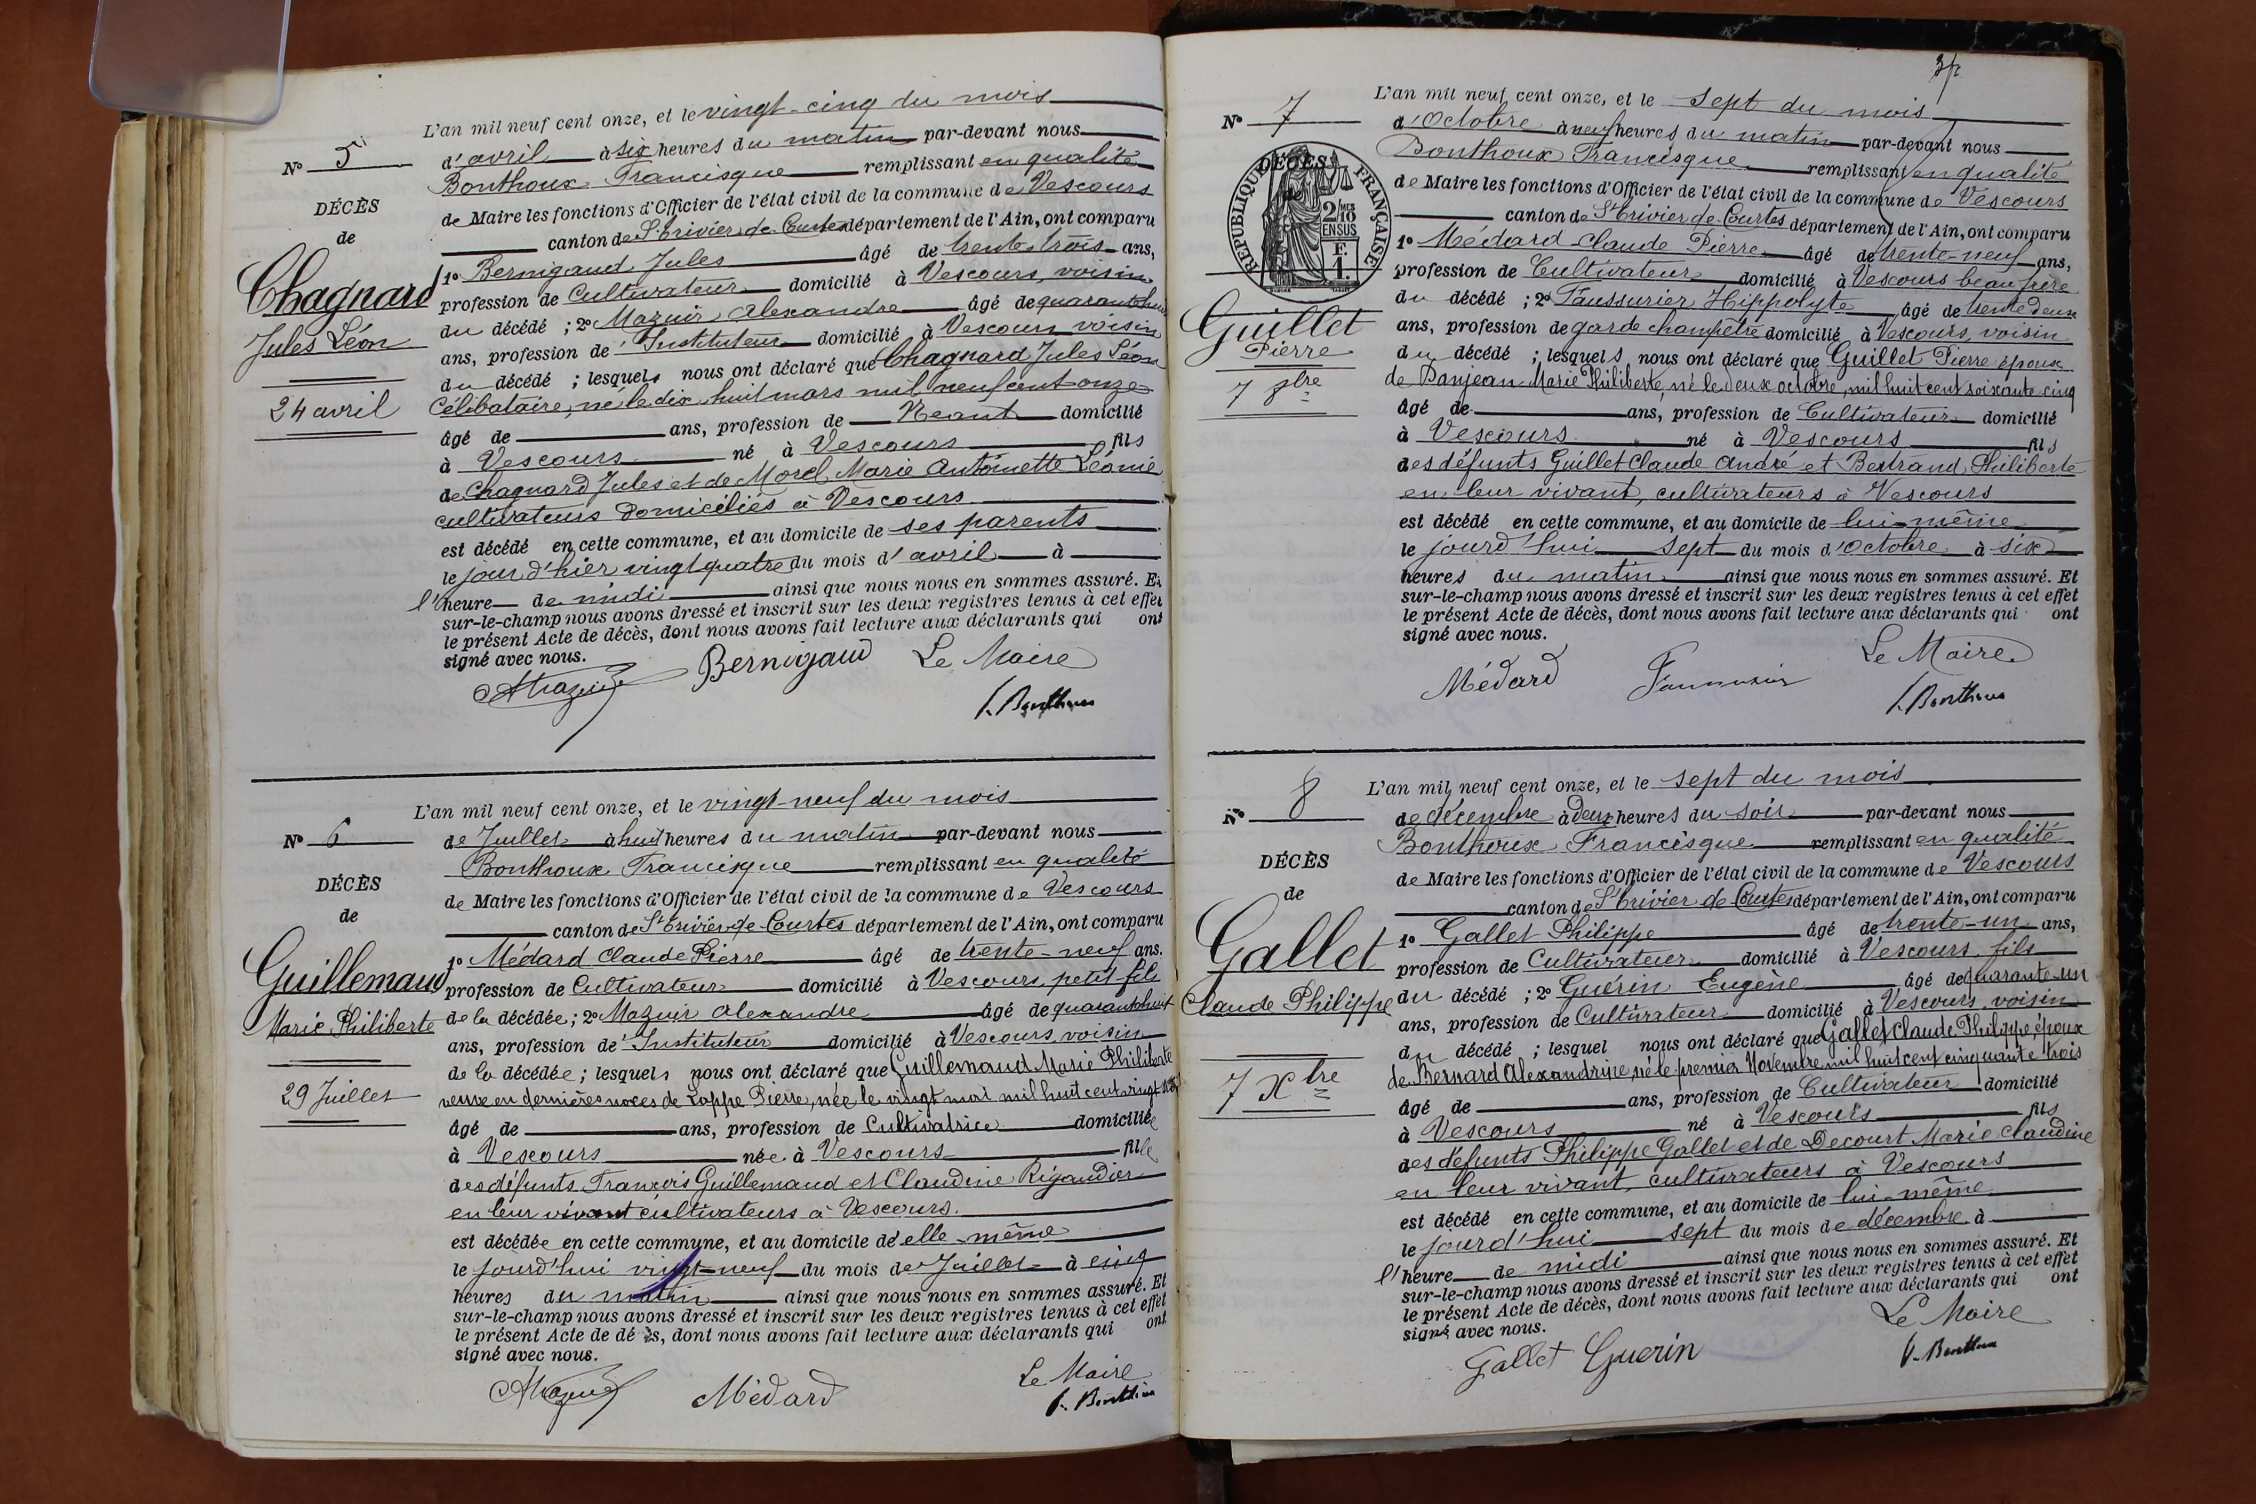 L'an mil neuf cent onze, et le vingt-cinq du mois
N° 5
d'avril à six heures du matin par-devant nous
Bonthoux Francisque remplissant en qualité
DÉCÈS
de Maire les fonctions d'Officier de l'état civil de la commune de Vescours
de
canton de St Trivier de Courtes département de l'Ain, ont comparu
Chagnard
1° Bernigaud Jules âgé de trente trois ans,
profession de Cultivateur domicilié à Vescours, voisin
Jules Léon
du décédé ; 2° Mazuir Alexandre âgé de quarante huit
ans, profession de Instituteur domicilié à Vescours voisin
24 avril
du décédé ; lesquels nous ont déclaré que Chagnard Jules Léon
Célibataire, né le dix huit mars mil neuf cent onze
âgé de ans, profession de Néant domicilié
à Vescours né à Vescours fils
de Chagnard Jules et de Morel Marie Antoinette Léonie
cultivateurs domiciliés à Vescours
est décédé en cette commune, et au domicile de ses parents
le jour d'hier vingt quatre du mois d'avril à
l'heure de midi ainsi que nous nous en sommes assuré. Et
sur-le-champ nous avons dressé et inscrit sur les deux registres tenus à cet effet
le présent Acte de décès, dont nous avons fait lecture aux déclarants qui ont
signé avec nous.
AMazuir Bernigaud Le Maire
f. Bonthoux
L'an mil neuf cent onze, et le vingt-neuf du mois
N° 6
de Juillet à huit heures du matin par-devant nous
Bonthoux Francisque remplissant en qualité
DÉCÈS
de Maire les fonctions d'Officier de l'état civil de la commune de Vescours
de
canton de St Trivier de Courtes département de l'Ain, ont comparu
Guillemaud
1° Médard Claude Pierre âgé de trente-neuf ans.
profession de Cultivateur domicilié à Vescours petit-fils
Marie Philiberte
de la décédée ; 2° Mazuir Alexandre âgé de quarante huit
ans, profession de Instituteur domicilié à Vescours, voisin
29 Juillet
de la décédée ; lesquels nous ont déclaré que Guillemaud Marie Philiberte
veuve en dernières noces de Lappe Pierre, née le vingt mai mil huit cent vingt
âgé de ans, profession de Cultivatrice domiciliée
à Vescours née à Vescours fille
des défunts François Guillemaud et Claudine Rigaudier
en leur vivant cultivateurs à Vescours.
est décédée en cette commune, et au domicile de elle-même
le jourd'hui vingt-neuf du mois de Juillet à cinq
heures du matin ainsi que nous nous en sommes assuré. Et
sur-le-champ nous avons dressé et inscrit sur les deux registres tenus à cet effet
le présent Acte de dé ès, dont nous avons fait lecture aux déclarants qui ont
signé avec nous.
AMazuir Médard Le Maire
f. Bonthoux
L'an mil neuf cent onze, et le sept du mois
N° 7
d'Octobre à neuf heures du matin par-devant nous
Bonthoux Francisque remplissant en qualité
DÉCÈS
de
REPUBLIQUE FRANÇAISE
2/10 MES
EN SUS
F.
1.
de Maire les fonctions d'Officier de l'état civil de la commune de Vescours
canton de St Trivier de Courtes département de l'Ain, ont comparu
1° Médard Claude Pierre âgé de trente-neuf ans,
profession de Cultivateur domicilié à Vescours beau frère
Guillet
du décédé ; 2° Faussurier Hippolyte âgé de trente deux
Pierre
ans, profession de garde champêtre domicilié à Vescours, voisin
du décédé ; lesquels nous ont déclaré que Guillet Pierre époux
7 8bre
de Panjean Marie Philiberte, né le deux octobre, mil huit cent soixante cinq
âgé de ans, profession de Cultivateur domicilié
à Vescours né à Vescours fils
des défunts Guillet Claude André et Bertrand Philiberte
en leur vivant, cultivateurs à Vescours
est décédé en cette commune, et au domicile de lui-même
le jourd'hui sept du mois d'Octobre à six
heures du matin ainsi que nous nous en sommes assuré. Et
sur-le-champ nous avons dressé et inscrit sur les deux registres tenus à cet effet
le présent Acte de décès, dont nous avons fait lecture aux déclarants qui ont
signé avec nous.
Le Maire
Médard Faussurier
f. Bonthoux
L'an mil neuf cent onze, et le sept du mois
N° 8
de décembre à deux heures du soir par-devant nous
Bonthoux Francisque remplissant en qualité
DÉCÈS
de Maire les fonctions d'Officier de l'état civil de la commune de Vescours
de
canton de St Trivier de Courtes département de l'Ain, ont comparu
Gallet
1° Gallet Philippe âgé de trente-un ans,
profession de Cultivateur domicilié à Vescours fils
Claude Philippe
du décédé ; 2° Guérin Eugène âgé de quarante-un
ans, profession de Cultivateur domicilié à Vescours, voisin
du décédé ; lesquel nous ont déclaré que Gallet Claude Philippe, époux
7 Xbre
de Bernard Alexandrine, né le premier Novembre mil huit cent cinquante trois
âgé de ans, profession de Cultivateur domicilié
à Vescours né à Vescours fils
des défunts Philippe Gallet et de Decourt Marie Claudine
en leur vivant, cultivateurs à Vescours
est décédé en cette commune, et au domicile de lui-même
le jourd'hui sept du mois de décembre à
l'heure de midi ainsi que nous nous en sommes assuré. Et
sur-le-champ nous avons dressé et inscrit sur les deux registres tenus à cet effet
le présent Acte de décès, dont nous avons fait lecture aux déclarants qui ont
signé avec nous.
Le Maire
Gallet Guerin
f. Bonthoux